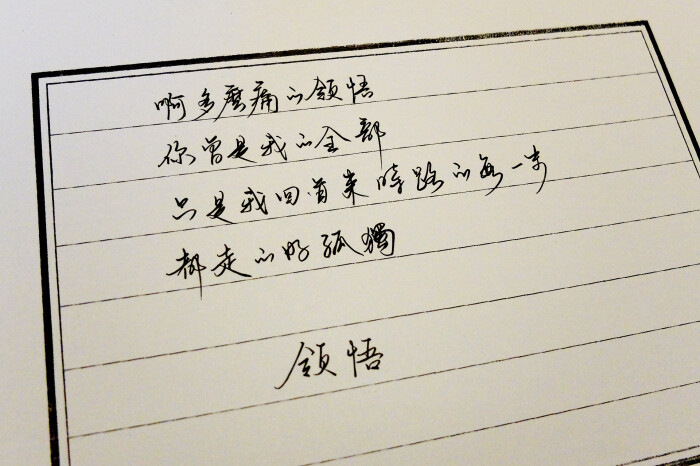 啊多麼痛的領悟
你曾是我的全部
只是我回首來時路的每一步
都走的好孤獨
領悟